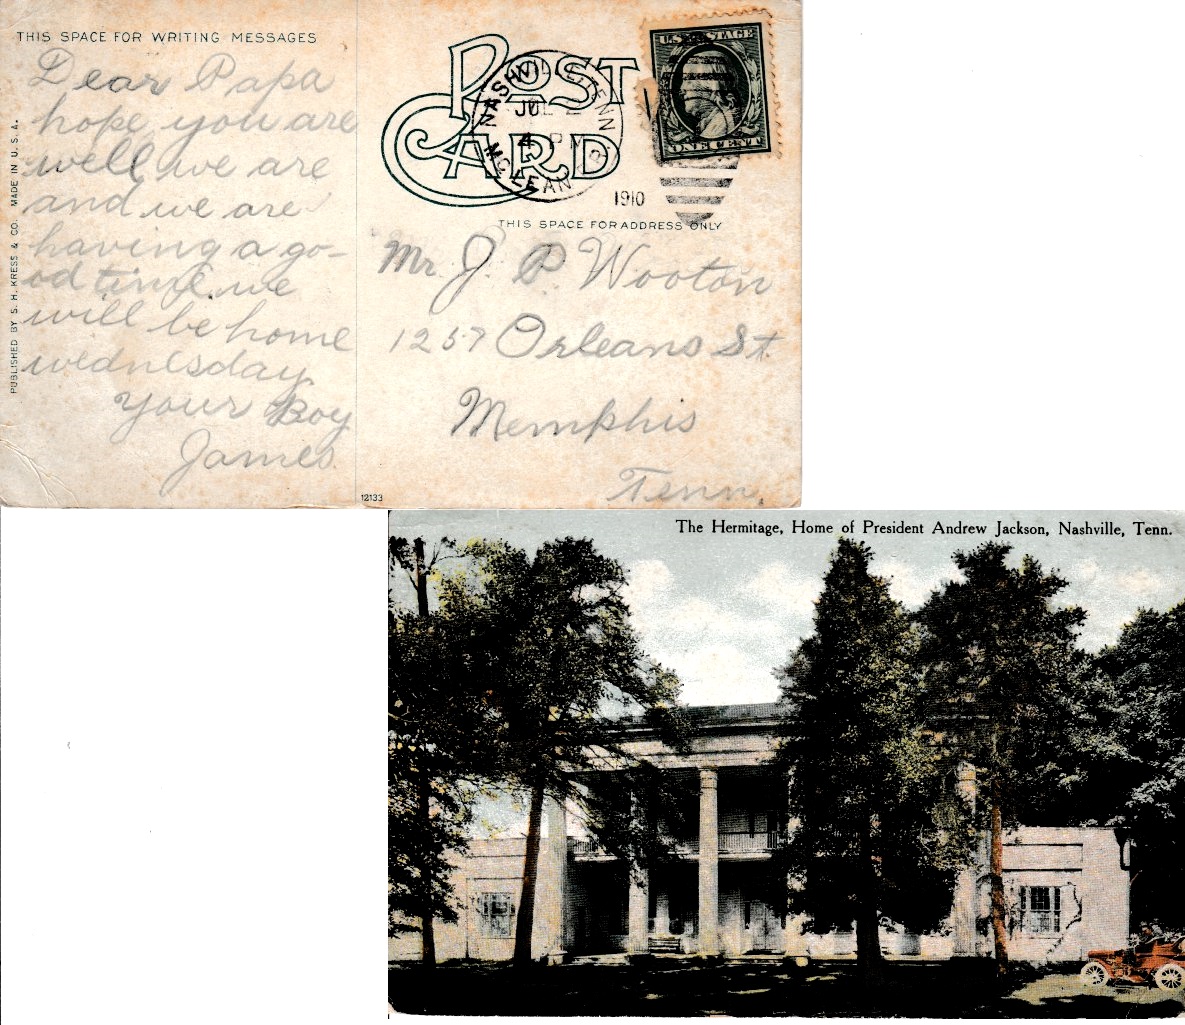 THIS SPACE FOR WRITING MESSAGES
Dear Papa
hope you are
well we are
and we are
having a go-
od time. we
will be home
wednesday
Your Boy
James.
PUBLISHED BY S. H. KRESS & CO. MADE IN U. S. A.
POST
CARD
NASHVIL TENN
JUL
4 P
McLEAN
1910
U.S. POSTAGE
ONE CENT
THIS SPACE FOR ADDRESS ONLY
Mr. J. P. Wooton
1257 Orleans St.
Memphis
Tenn.
12133
The Hermitage, Home of President Andrew Jackson, Nashville, Tenn.